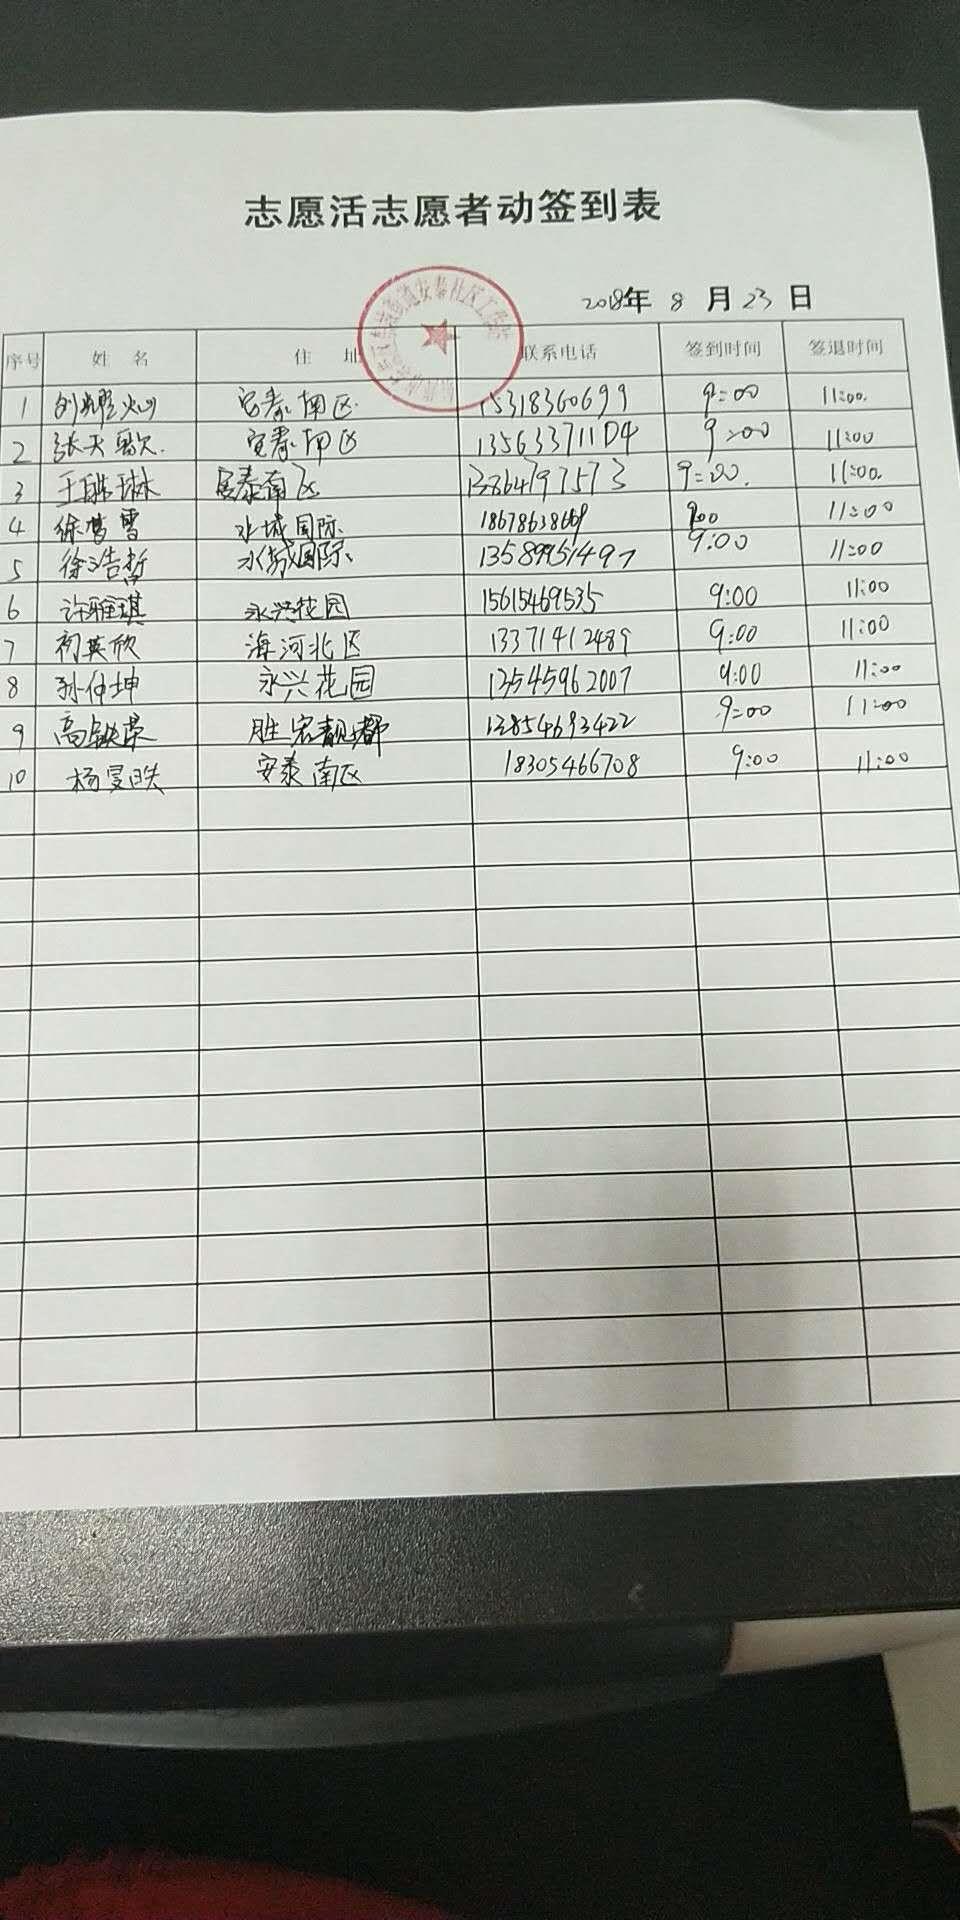 志愿活志愿者动签到表
2018年 8 月 23 日
序号 姓 名 住 址 联系电话 签到时间 签退时间
1 刘耀 安泰南区 15318360699 9:00 11:00.
2 张天 安泰南区 13563371104 9:00 11:00
3 王琳琳 安泰南区 13864797573 9:00. 11:00.
4 徐梦雪 水城国际 9:00 11:00
5 徐浩哲 水城国际 13589951497 9:00 11:00
6 许雅琪 永兴花园 15615469535 9:00 11:00
7 初英欣 海河北区 13371412489 9:00 11:00
8 孙仲坤 永兴花园 13545962007 9:00 11:00
9 高 胜宏靓都 13854693422 9:00 11:00
10 杨昊昳 安泰南区 18305466708 9:00 11:00